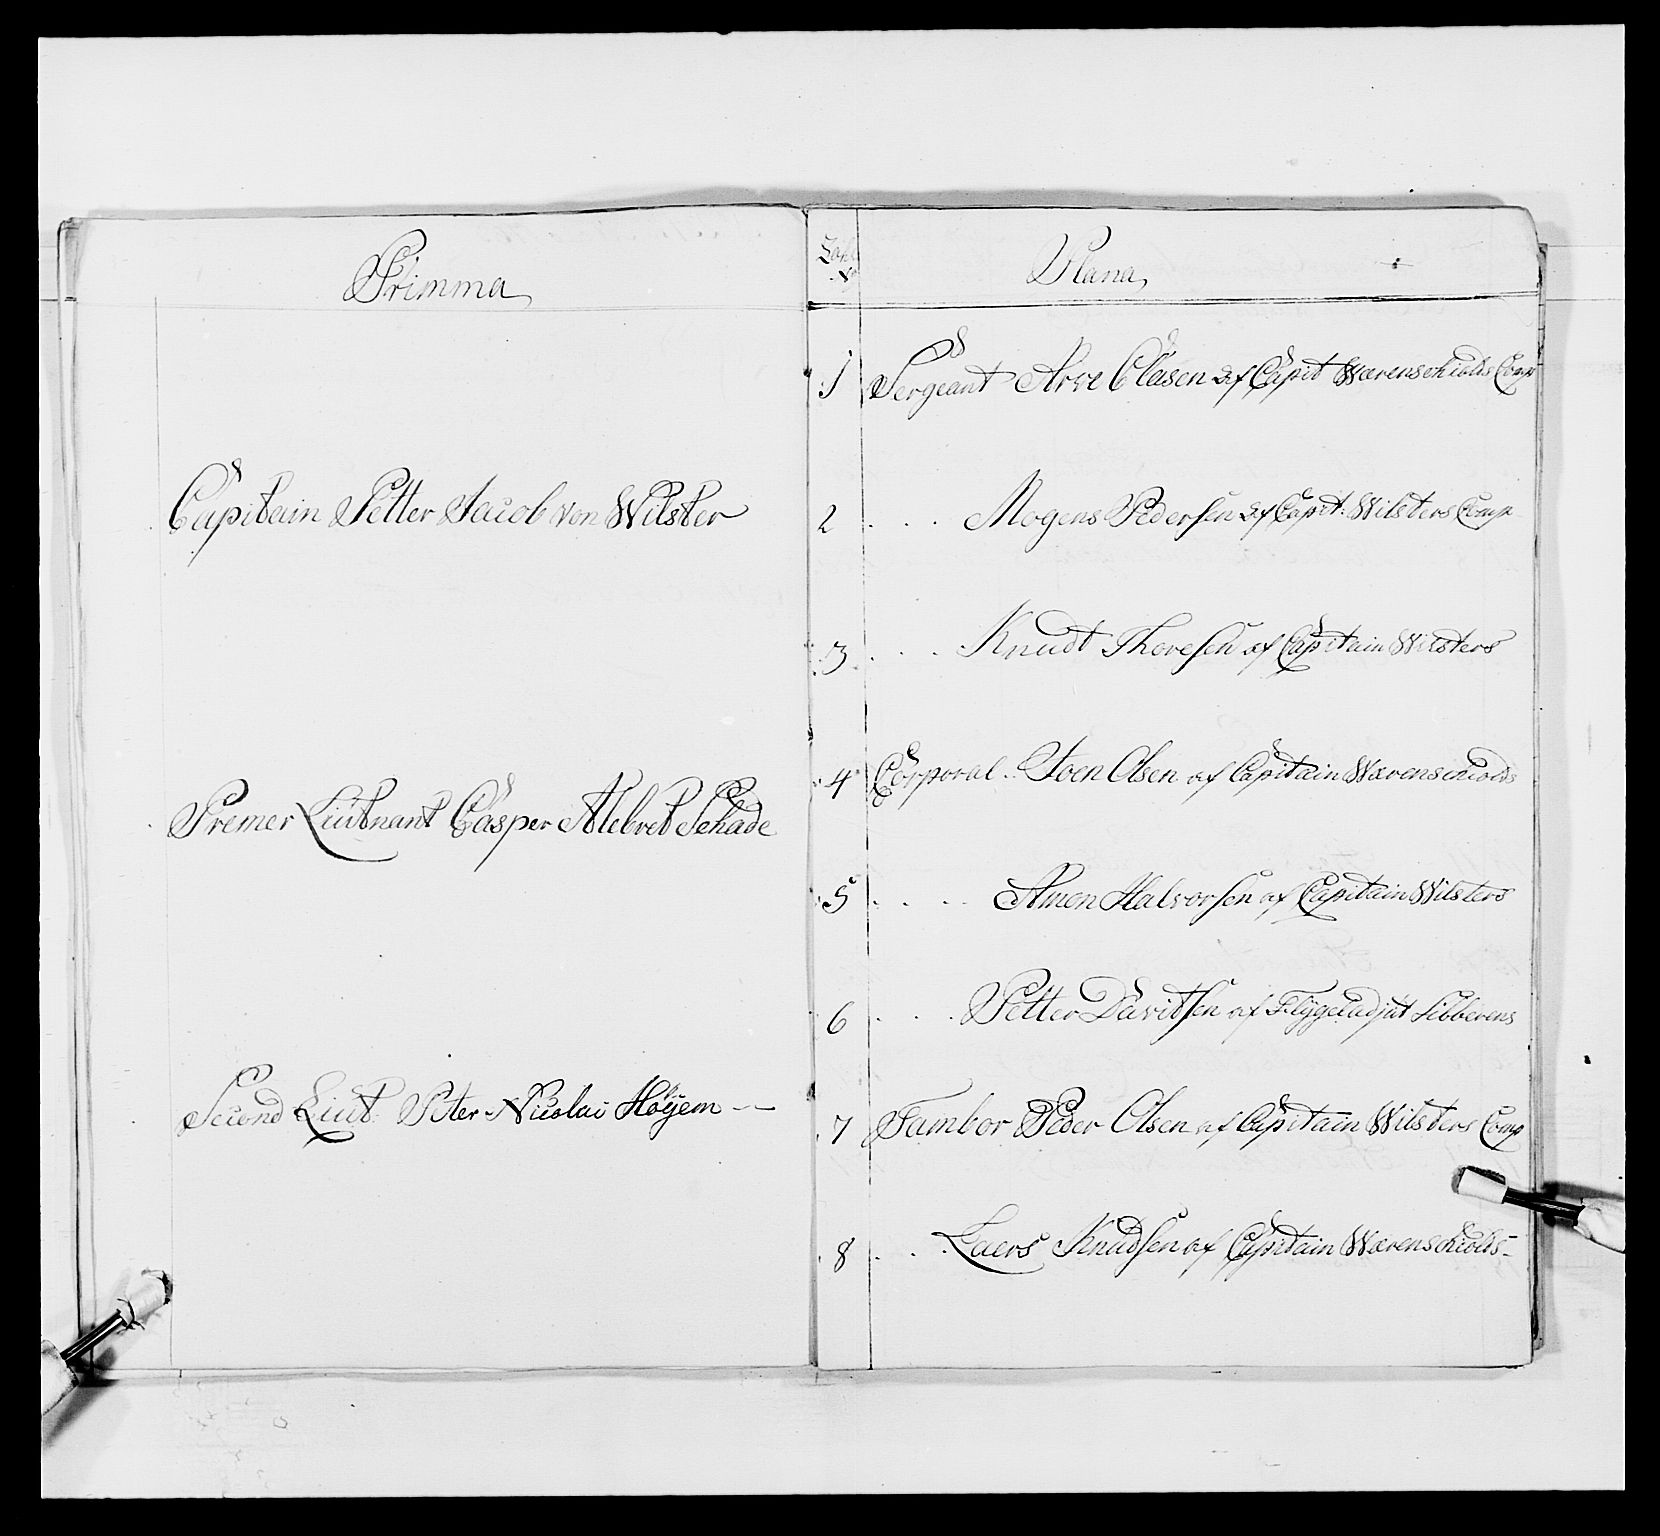 Primma
Capitain Petter Jacob von Wilster
Premer Liutnant Casper Alebret Schade
Second Liut. Peter Nicolai Høÿem --
No
Plana,
1 Sergeant Arve Clasen af Capit Wærenschiolds Comp
2 . . . Mogens Pedersen af Capit. Wilsters Comp
3 . . . Knudt Thoresen af Capitain Wilsters
4 Corporal .. Joen Olsen af Capitain Wærenschiolds
5 . . . . Amon Halvorsen af Capitain Wilsters
6 . . . Petter Davitsen af Flÿgeladjut Sibberens
7 Tambor Peder Olsen af Capitain Wilsters Comp
8 . . . Laers Knudsen af Capitain Wærenschiolds-